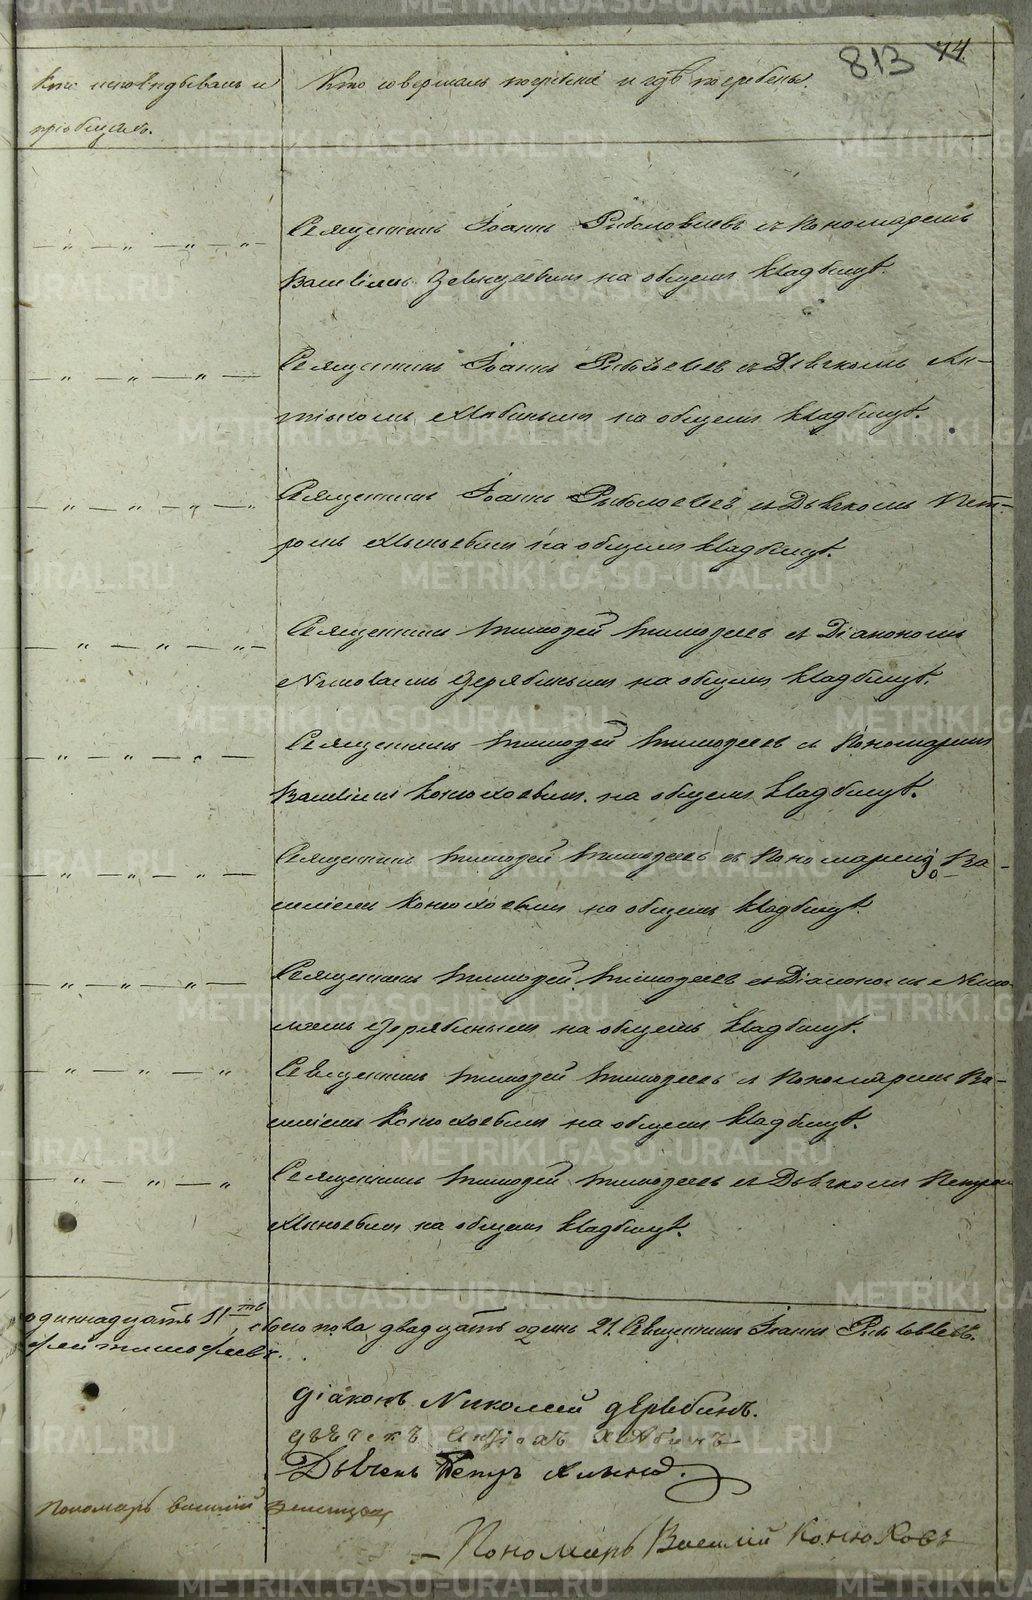 813 74
Кто исповѣдывалъ и
пріобщалъ.
Кто совершалъ погребеніе и гдѣ погребены.
Священникъ Іоаннъ съ Пономаремъ
Василіемъ на общемъ кладбищѣ.
Священникъ Іоаннъ съ Дьячкомъ Ан-
тіохомъ Хлябинымъ на общемъ кладбищѣ.
Священникъ Іоаннъ съ Дьячкомъ Пет-
ромъ на общемъ кладбищѣ.
Священникъ Тимофей Тимофеевъ съ Діакономъ
Николаемъ Дерябинымъ на общемъ кладбищѣ.
Священникъ Тимофей Тимофеевъ съ Пономаремъ
Василіемъ Конюховымъ на общемъ кладбищѣ.
Священникъ Тимофей Тимофеевъ съ Пономаремъ Ва-
силіемъ Конюховымъ на общемъ кладбищѣ.
Священникъ Тимофей Тимофеевъ съ Діакономъ Нико-
лаемъ Дерябинымъ на общемъ кладбищѣ.
Священникъ Тимофей Тимофеевъ съ Пономаремъ Ва-
силіемъ Конюховымъ на общемъ кладбищѣ.
Священникъ Тимофей Тимофеевъ съ Дьячкомъ Петромъ
на общемъ кладбищѣ.
одиннадцать 11ть, обоего пола двадцать одинъ 21. Священникъ Іоаннъ
Тимофеевъ.
Діаконъ Николай Дерябинъ.
Дьячекъ Антіохъ Хлябинъ
Дьячекъ Петръ
Пономарь Василій
Пономарь Василій Конюховъ
METRIKI.GASO-URAL.RU